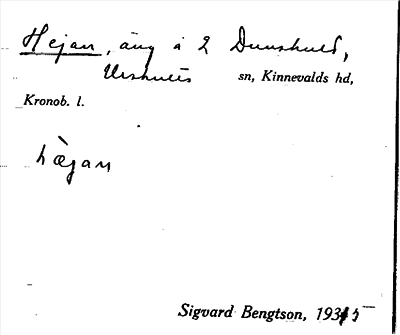 Hejan, äng å 2 Dunshult,
Urshults sn, Kinnevalds hd,
Kronob. l.
hæ̀jan
Sigvard Bengtson, 1935